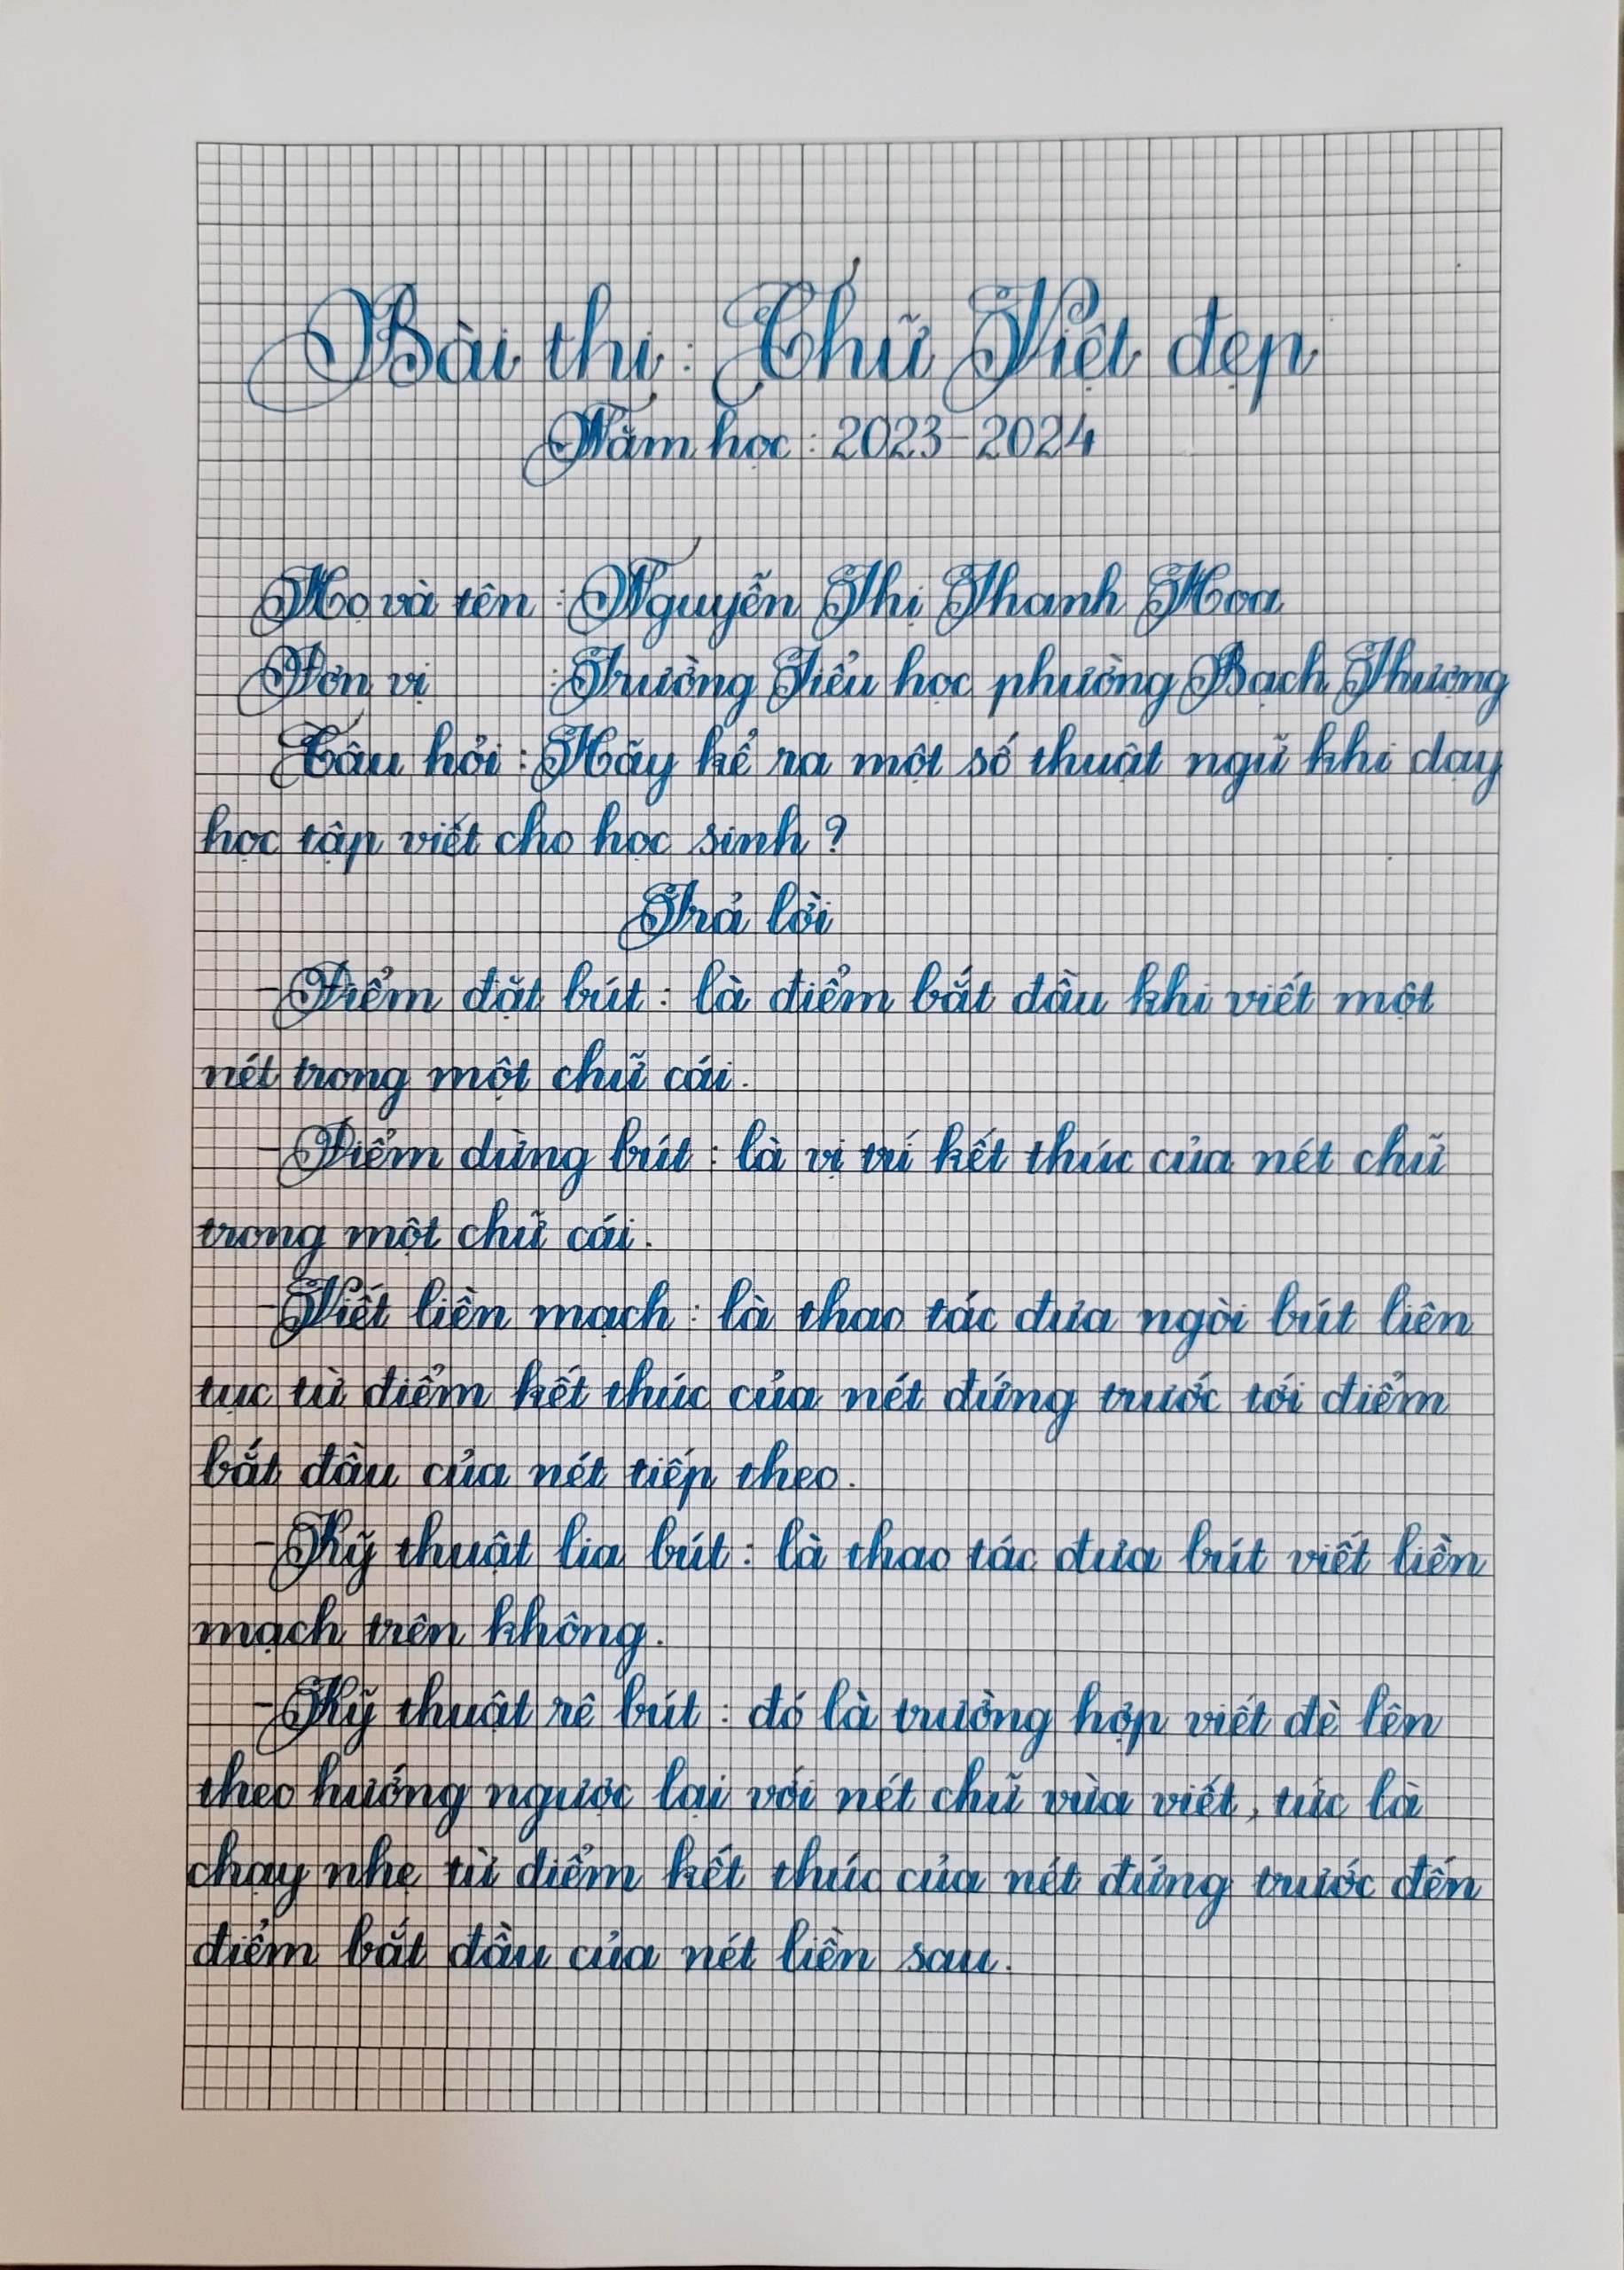 Bài thi: Chữ Việt đẹp
Năm học: 2023-2024
Họ và tên : Nguyễn Thị Thanh Hoa
Đơn vị : Trường Tiểu học phường Bạch Thượng
Câu hỏi : Hãy kể ra một số thuật ngữ khi dạy
học tập viết cho học sinh?
Trả lời
- Điểm đặt bút: là điểm bắt đầu khi viết một
nét trong một chữ cái.
- Điểm dừng bút: là vị trí kết thúc của nét chữ
trong một chữ cái.
- Viết liền mạch: là thao tác đưa ngòi bút liên
tục từ điểm kết thúc của nét đứng trước tới điểm
bắt đầu của nét tiếp theo.
- Kỹ thuật lia bút: là thao tác đưa bút viết liền
mạch trên không.
- Kỹ thuật rê bút: đó là trường hợp viết đè lên
theo hướng ngược lại với nét chữ vừa viết, tức là
chạy nhẹ từ điểm kết thúc của nét đứng trước đến
điểm bắt đầu của nét liền sau.